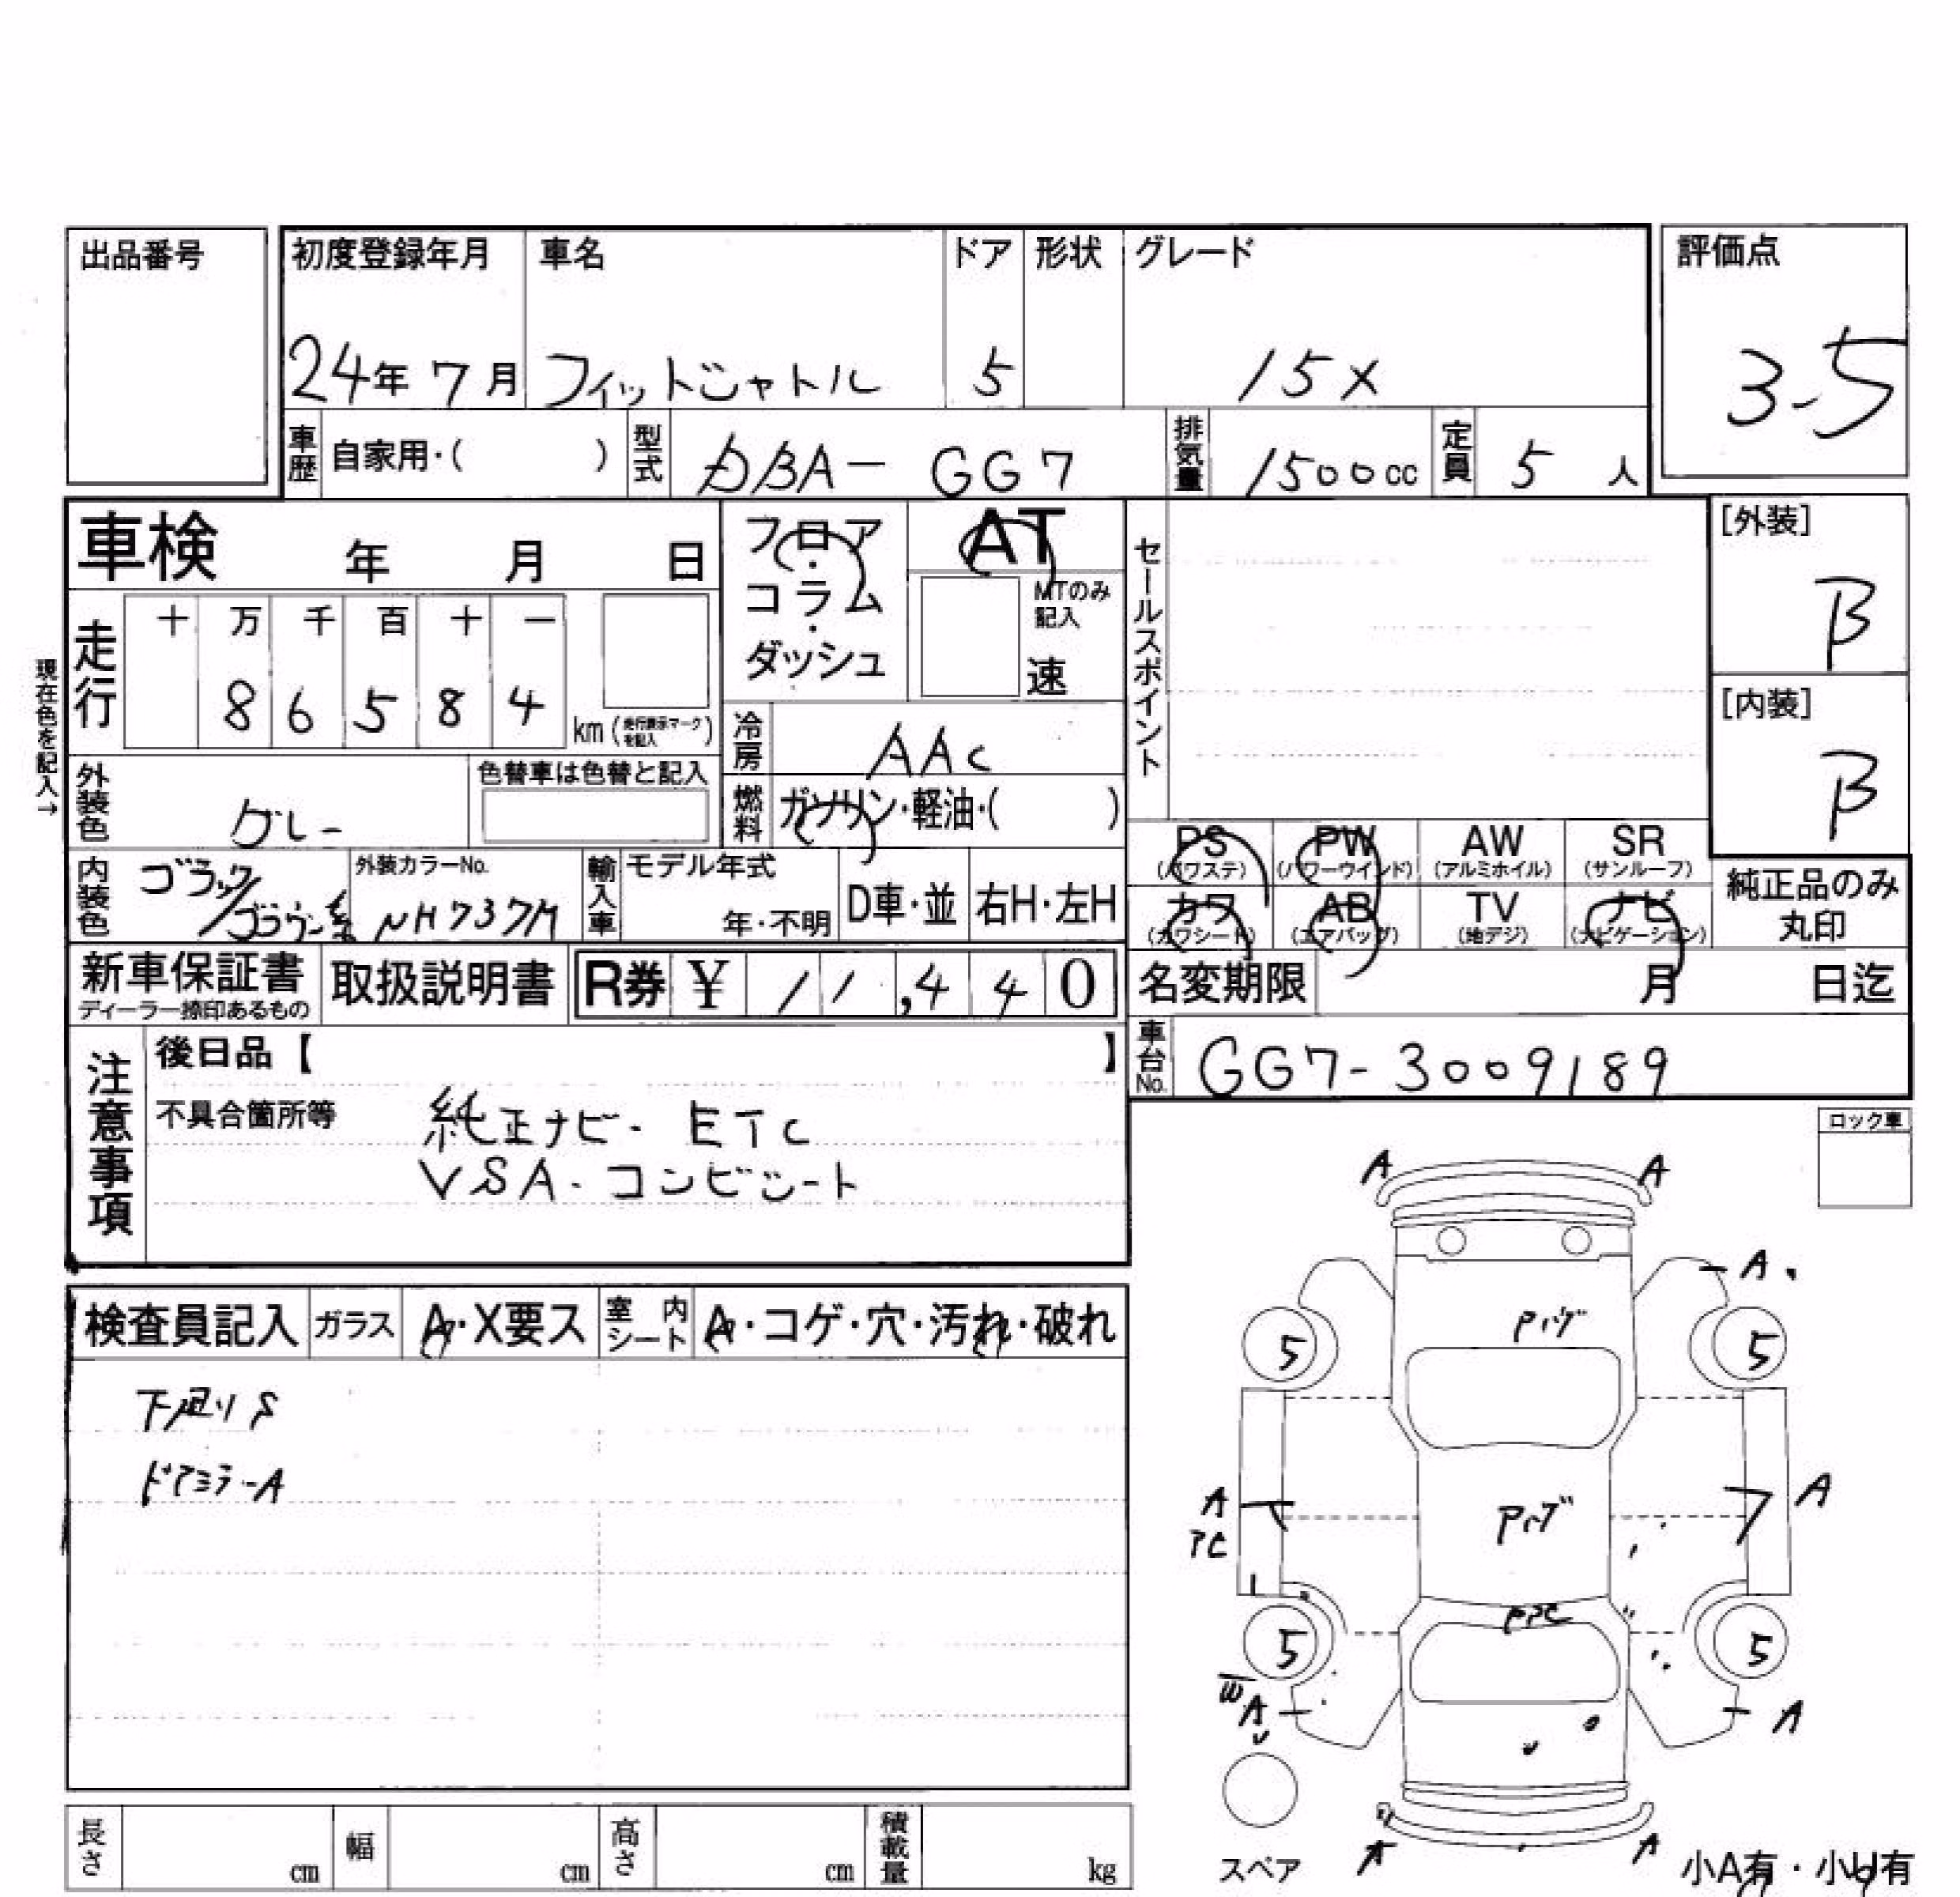 出品番号
初度登録年月 車名 ドア 形状 グレード 評価点
24年 7月 フィットシャトル 5 15X 3.5
車歴 自家用・( ) 型式 DBA- GG7 排気量 1500cc 定員 5 人
車検 年 月 日
フロア・コラム・ダッシュ
AT
MTのみ記入
速
セールスポイント
[外装]
B
[内装]
B
現在色を記入→
走行 十 万 千 百 十 一
8 6 5 8 4 km (走行表示マークを記入)
冷房 AAC
外装色 グレー 色替車は色替と記入
燃料 ガソリン・軽油・( )
PS (パワステ) PW (パワーウインド) AW (アルミホイル) SR (サンルーフ)
カワ (カワシート) AB (エアバッグ) TV (地デジ) ナビ (ナビゲーション)
純正品のみ丸印
内装色 ブラック/ブラウン系 外装カラーNo. NH737M 輸入車 モデル年式 年・不明 D車・並 右H・左H
新車保証書 ディーラー捺印あるもの 取扱説明書 R券 ¥ 11,440
名変期限 月 日迄
車台No. GG7-3009189
注意事項
後日品【 】
不具合箇所等 純正ナビ・ETC
VSA・コンビシート
ロック車
検査員記入 ガラス A・X要ス 室内シート A・コゲ・穴・汚れ・破れ
下廻りS
ドアミラーA
A A
A
Pハゲ
5 5
A A
Pハゲ
5 5
W
A A
スペア
A A
小A有・小U有
長さ cm 幅 cm 高さ cm 積載量 kg